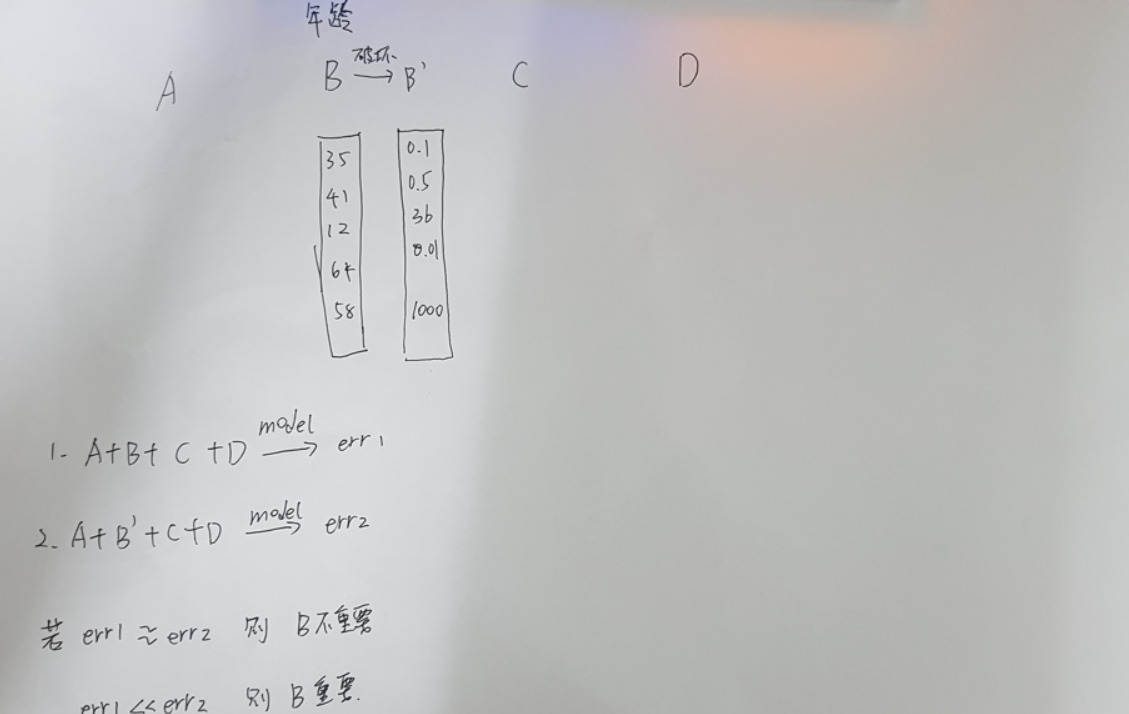 年龄
A B 破坏→ B' C D
35 0.1
41 0.5
12 36
64 0.01
58 1000
1- A+B+ C +D model→ err1
2. A+B'+C+D model→ err2
若 err1 ≈ err2 则 B不重要
err1 << err2 则 B重要.